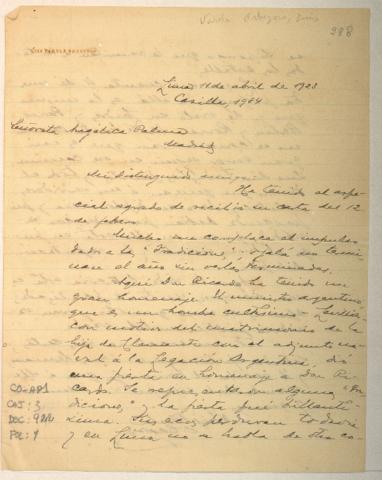 Varela Orbegoso, Luis
288
LUIS VARELA ORBEGOSO
Lima, 11 de abril de 1923
Casilla, 1964
Señorita Angélica Palma
Madrid
Mi distinguida amiga:
He tenido el espe-
cial agrado de recibir su carta del 12
de febrero.
Mucho me complace el impulso
dado a las "Tradiciones". Ojalá no termi-
nase el año sin verlas terminadas.
Aquí Don Ricardo ha tenido un
gran homenaje. El ministro argentino
que es un hombre cultísimo
con motivo del matrimonio de la
hija de con el adjunto na-
val a la Legación Argentina, dió
una fiesta en homenaje a Don Ri-
cardo. Se representaron algunas "Tra-
diciones" y la fiesta fué brillantí-
sima. Sus ecos perduran todavía
y en Lima no se habla de otra co-
CO-AP1
CAJ: 3
DOC:
FOL: 1